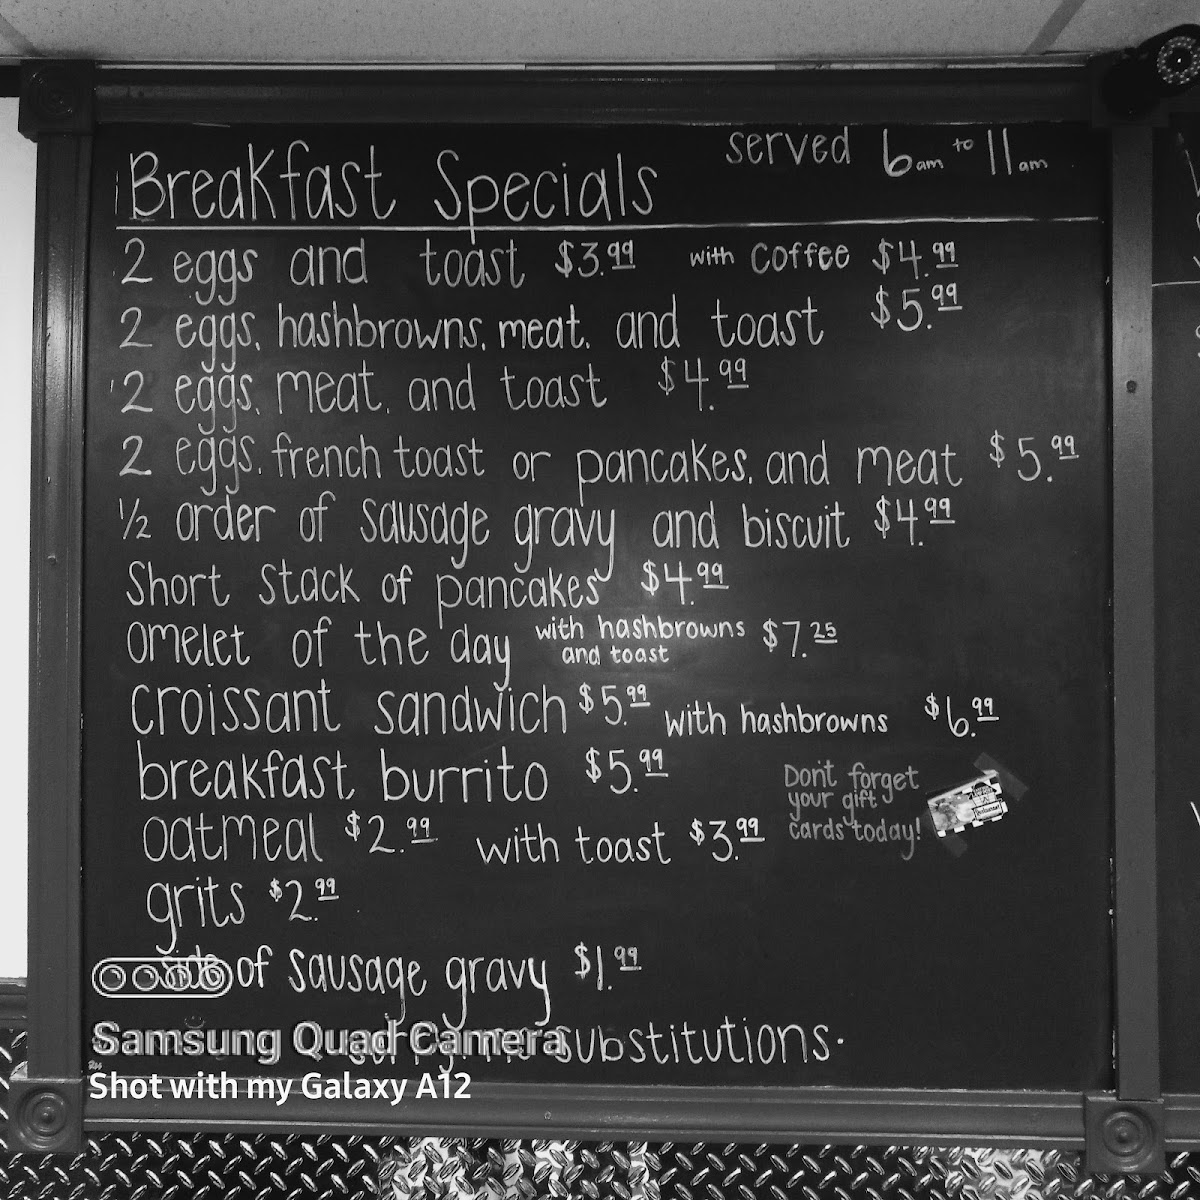 Breakfast Specials served 6am to 11am
2 eggs and toast $3.99 with coffee $4.99
2 eggs, hashbrowns, meat, and toast $5.99
2 eggs, meat, and toast $4.99
2 eggs, french toast or pancakes, and meat $5.99
1/2 order of sausage gravy and biscuit $4.99
Short stack of pancakes $4.99
omelet of the day with hashbrowns and toast $7.25
croissant sandwich $5.99 with hashbrowns $6.99
breakfast burrito $5.99
Don't forget
your gift
cards today!
oatmeal $2.99 with toast $3.99
grits $2.99
side of sausage gravy $1.99
sorry no substitutions.
Samsung Quad Camera
Shot with my Galaxy A12